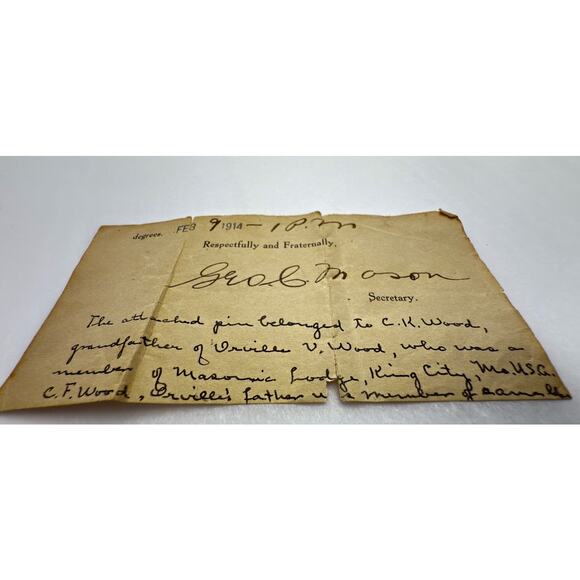 degrees. FEB 9 1914 - 1 P.M
Respectfully and Fraternally,
Geo. C. Mason
Secretary.
The attached pin belonged to C.K. Wood,
grandfather of Orville V. Wood, who was a
member of Masonic Lodge, King City, Mo. U.S.A.
C.F. Wood, Orville's father a member of same